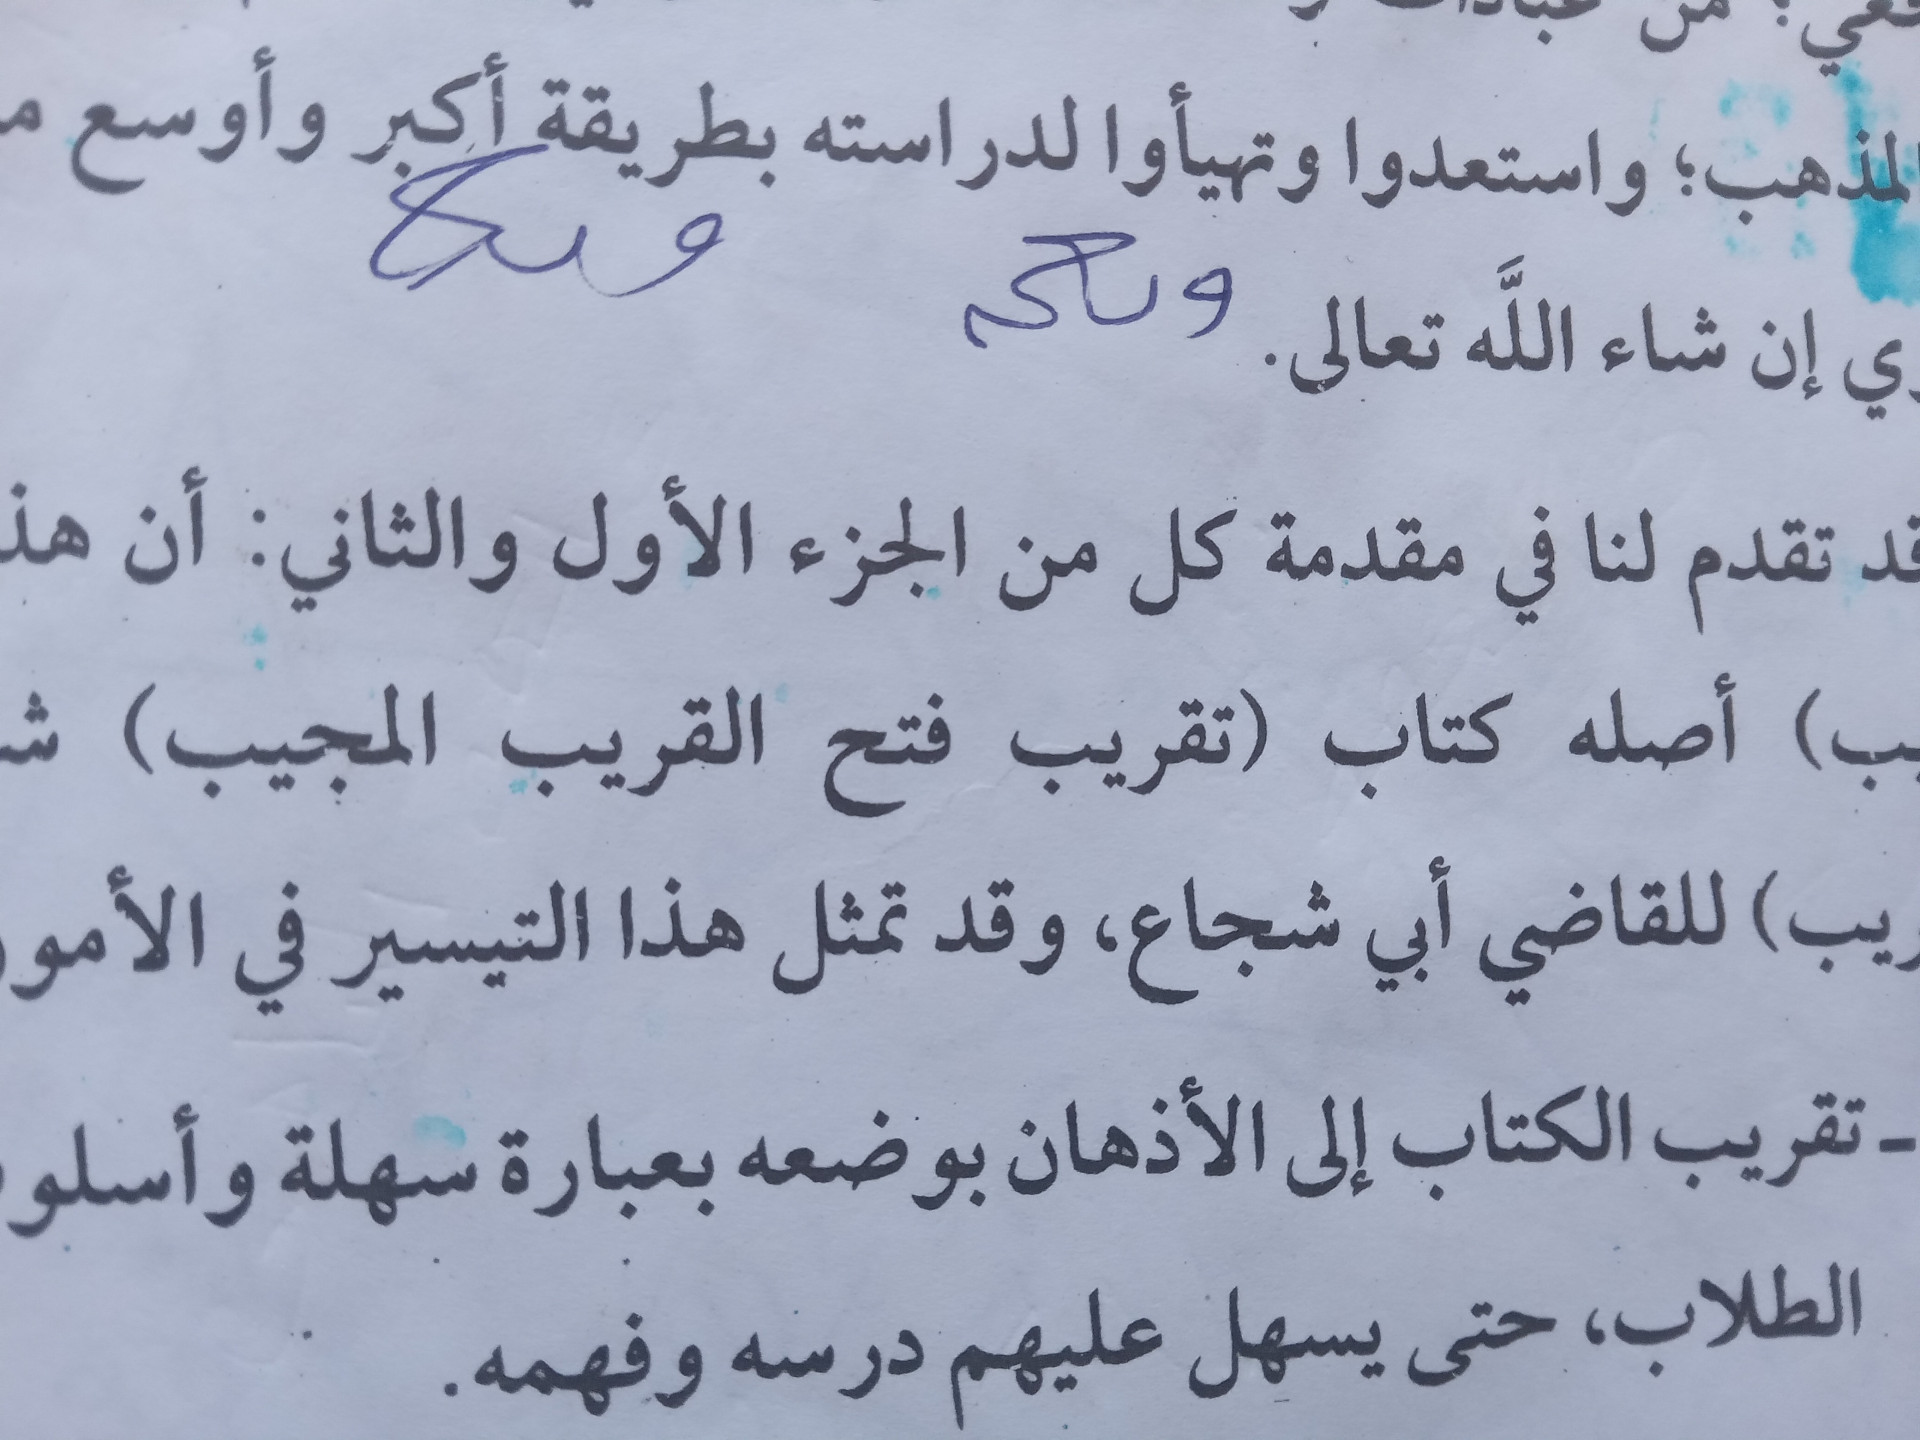 من عبادات
المذهب؛ واستعدوا وتهيأوا لدراسته بطريقة أكبر وأوسع
إن شاء اللَّه تعالى.
قد تقدم لنا في مقدمة كل من الجزء الأول والثاني: أن هذ
يب) أصله كتاب (تقريب فتح القريب المجيب)
ريب) للقاضي أبي شجاع، وقد تمثل هذا التيسير في الأمور
- تقريب الكتاب إلى الأذهان بوضعه بعبارة سهلة وأسلو
الطلاب، حتى يسهل عليهم درسه وفهمه.